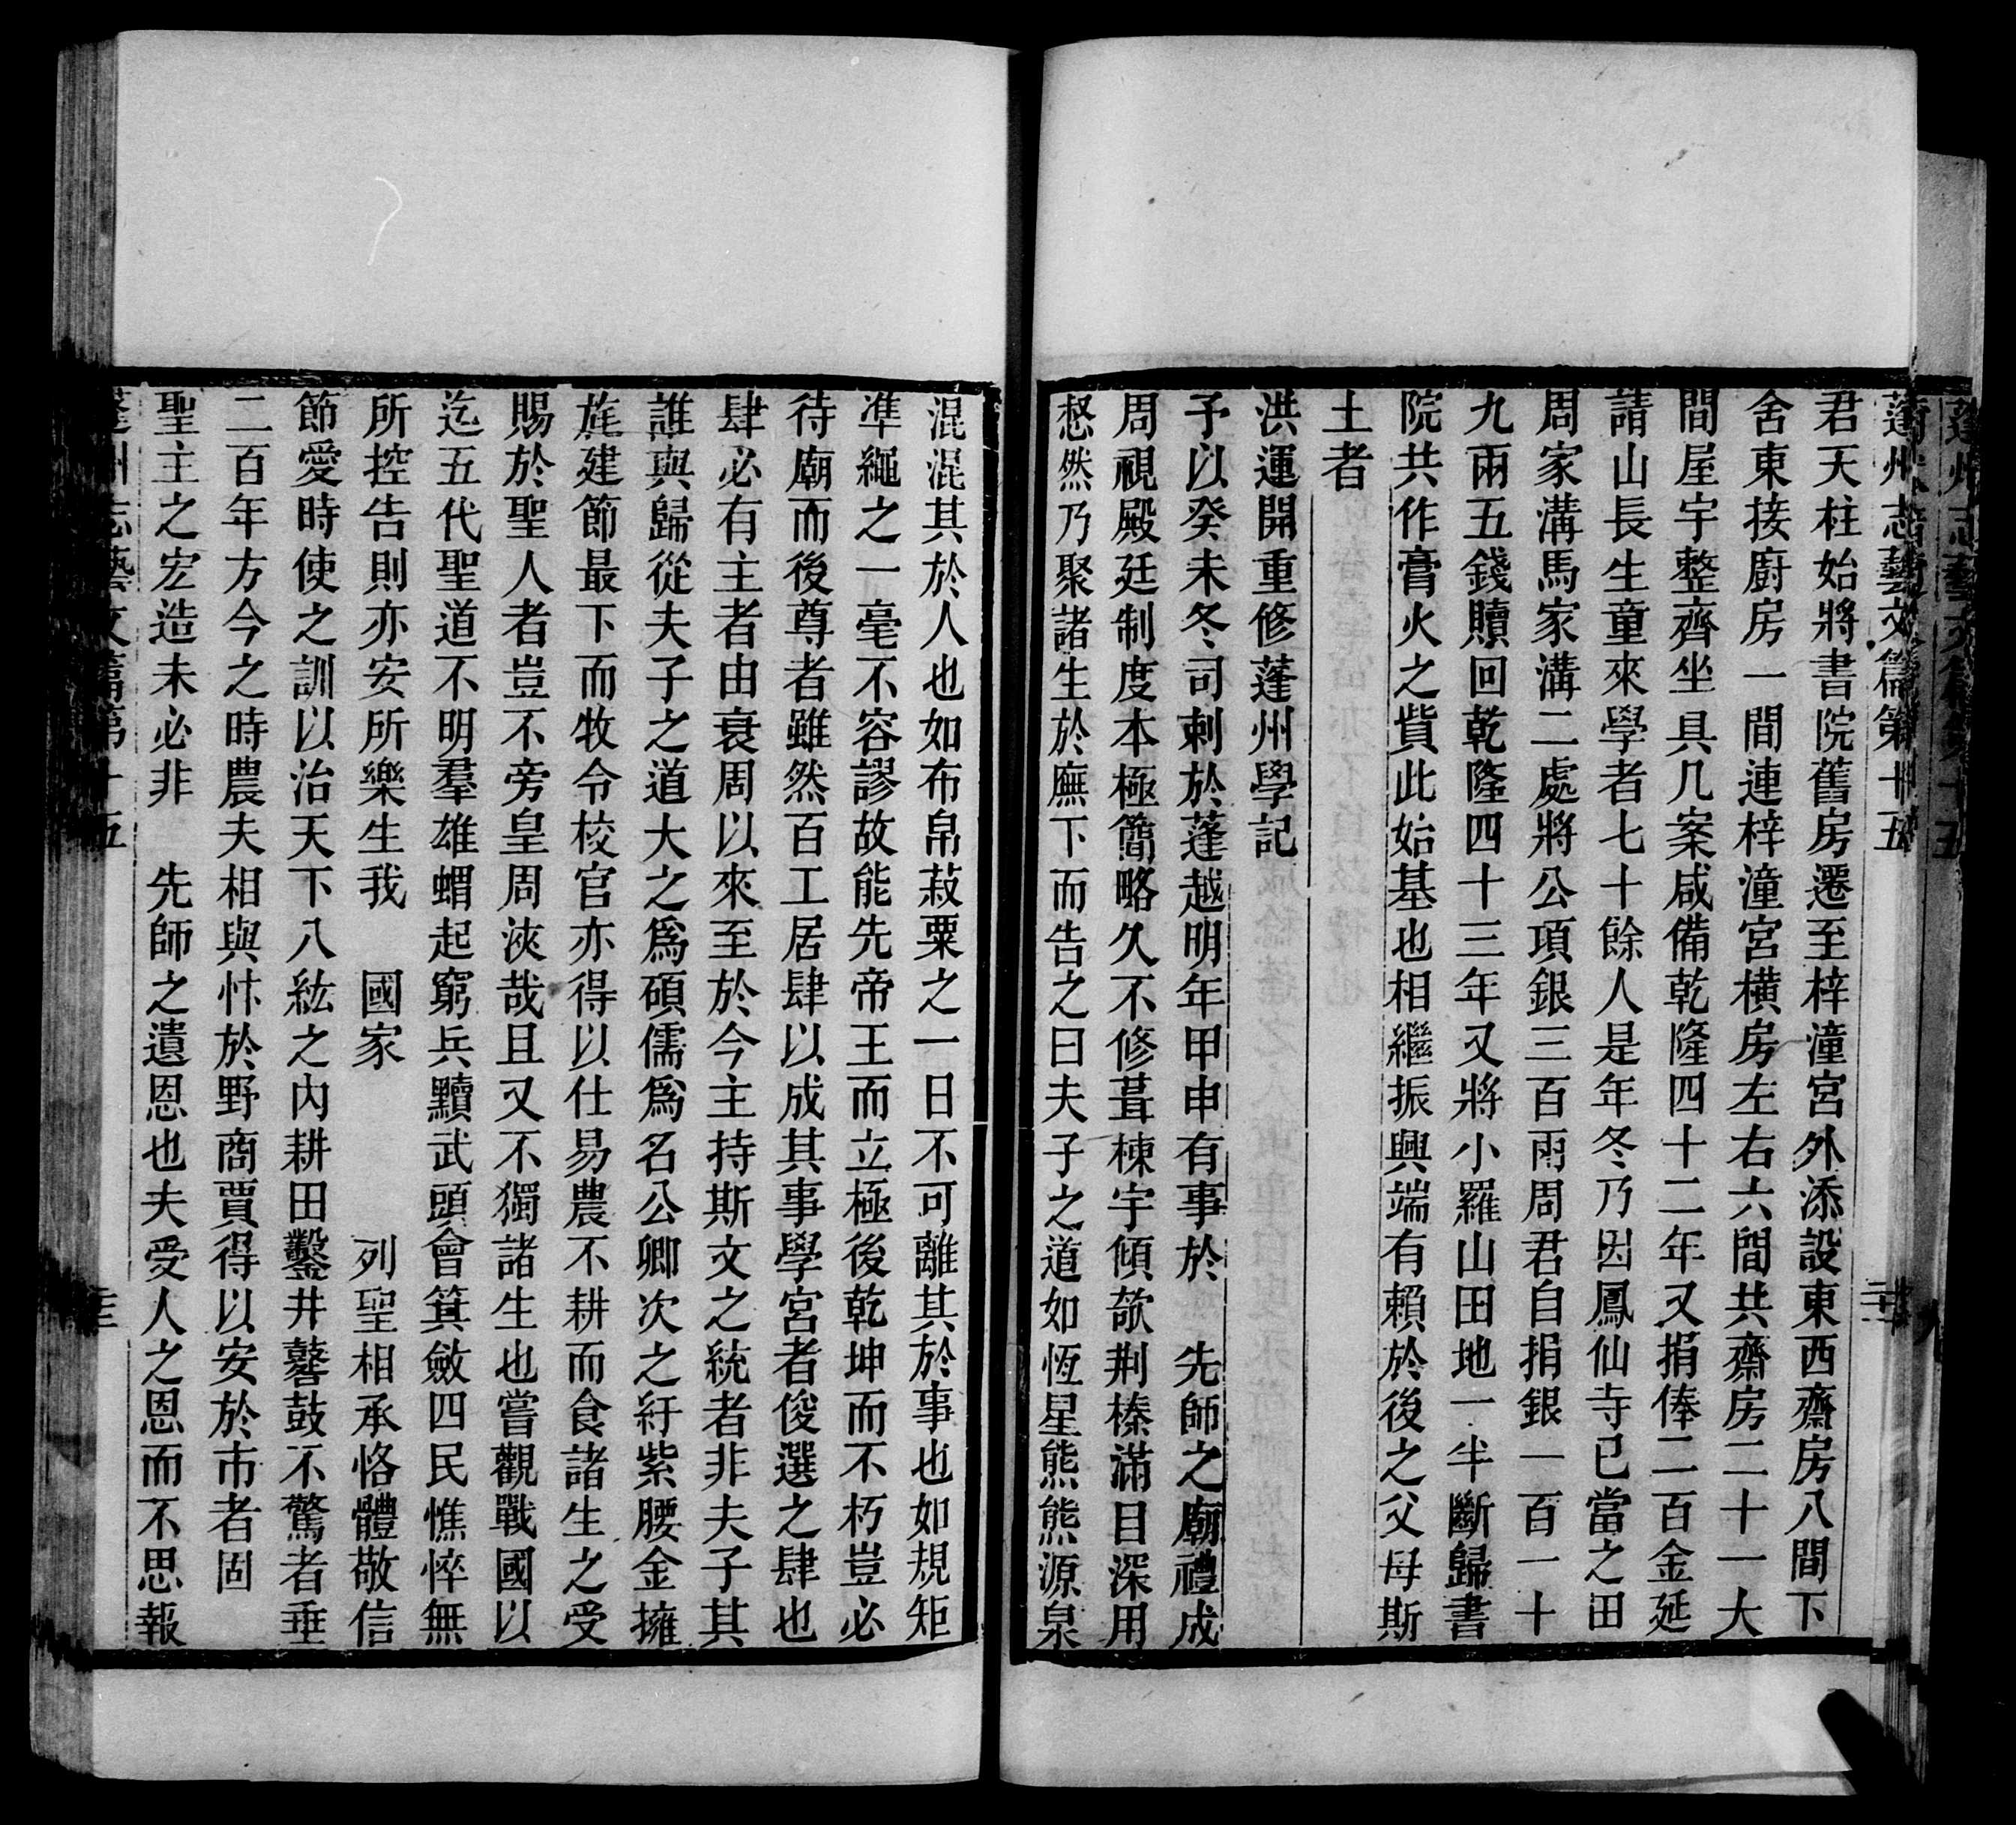 蓬州志藝文篇第十五
君天柱始將書院舊房遷至梓潼宮外添設東西齋房八間下
舍東接廚房一間連梓潼宮橫房左右六間共齋房二十一大
間屋宇整齊坐具几案咸備乾隆四十二年又捐俸二百金延
請山長生童來學者七十餘人是年冬乃因鳳仙寺已當之田
周家溝馬家溝二處將公項銀三百兩周君自捐銀一百一十
九兩五錢贖回乾隆四十三年又將小羅山田地一半斷歸書
院共作膏火之貲此始基也相繼振興端有賴於後之父母斯
土者
洪運開重修蓬州學記
予以癸未冬司刺於蓬越明年甲申有事於　先師之廟禮成
周視殿廷制度本極簡略久不修葺棟宇傾欹荆榛滿目深用
惄然乃聚諸生於廡下而告之曰夫子之道如恆星熊熊源泉
混混其於人也如布帛菽粟之一日不可離其於事也如規矩
準繩之一毫不容謬故能先帝王而立極後乾坤而不朽豈必
待廟而後尊者雖然百工居肆以成其事學宮者俊選之肆也
肆必有主者由衰周以來至於今主持斯文之統者非夫子其
誰與歸從夫子之道大之爲碩儒爲名公卿次之紆紫腰金擁
旄建節最下而牧令校官亦得以仕易農不耕而食諸生之受
賜於聖人者豈不旁皇周浹哉且又不獨諸生也嘗觀戰國以
迄五代聖道不明羣雄蝟起窮兵黷武頭會箕斂四民憔悴無
所控告則亦安所樂生我　國家　　列聖相承恪體敬信
節愛時使之訓以治天下八紘之內耕田鑿井鼛鼓不驚者垂
二百年方今之時農夫相與忭於野商賈得以安於市者固
聖主之宏造未必非　先師之遺恩也夫受人之恩而不思報
蓬州志藝文篇第十五